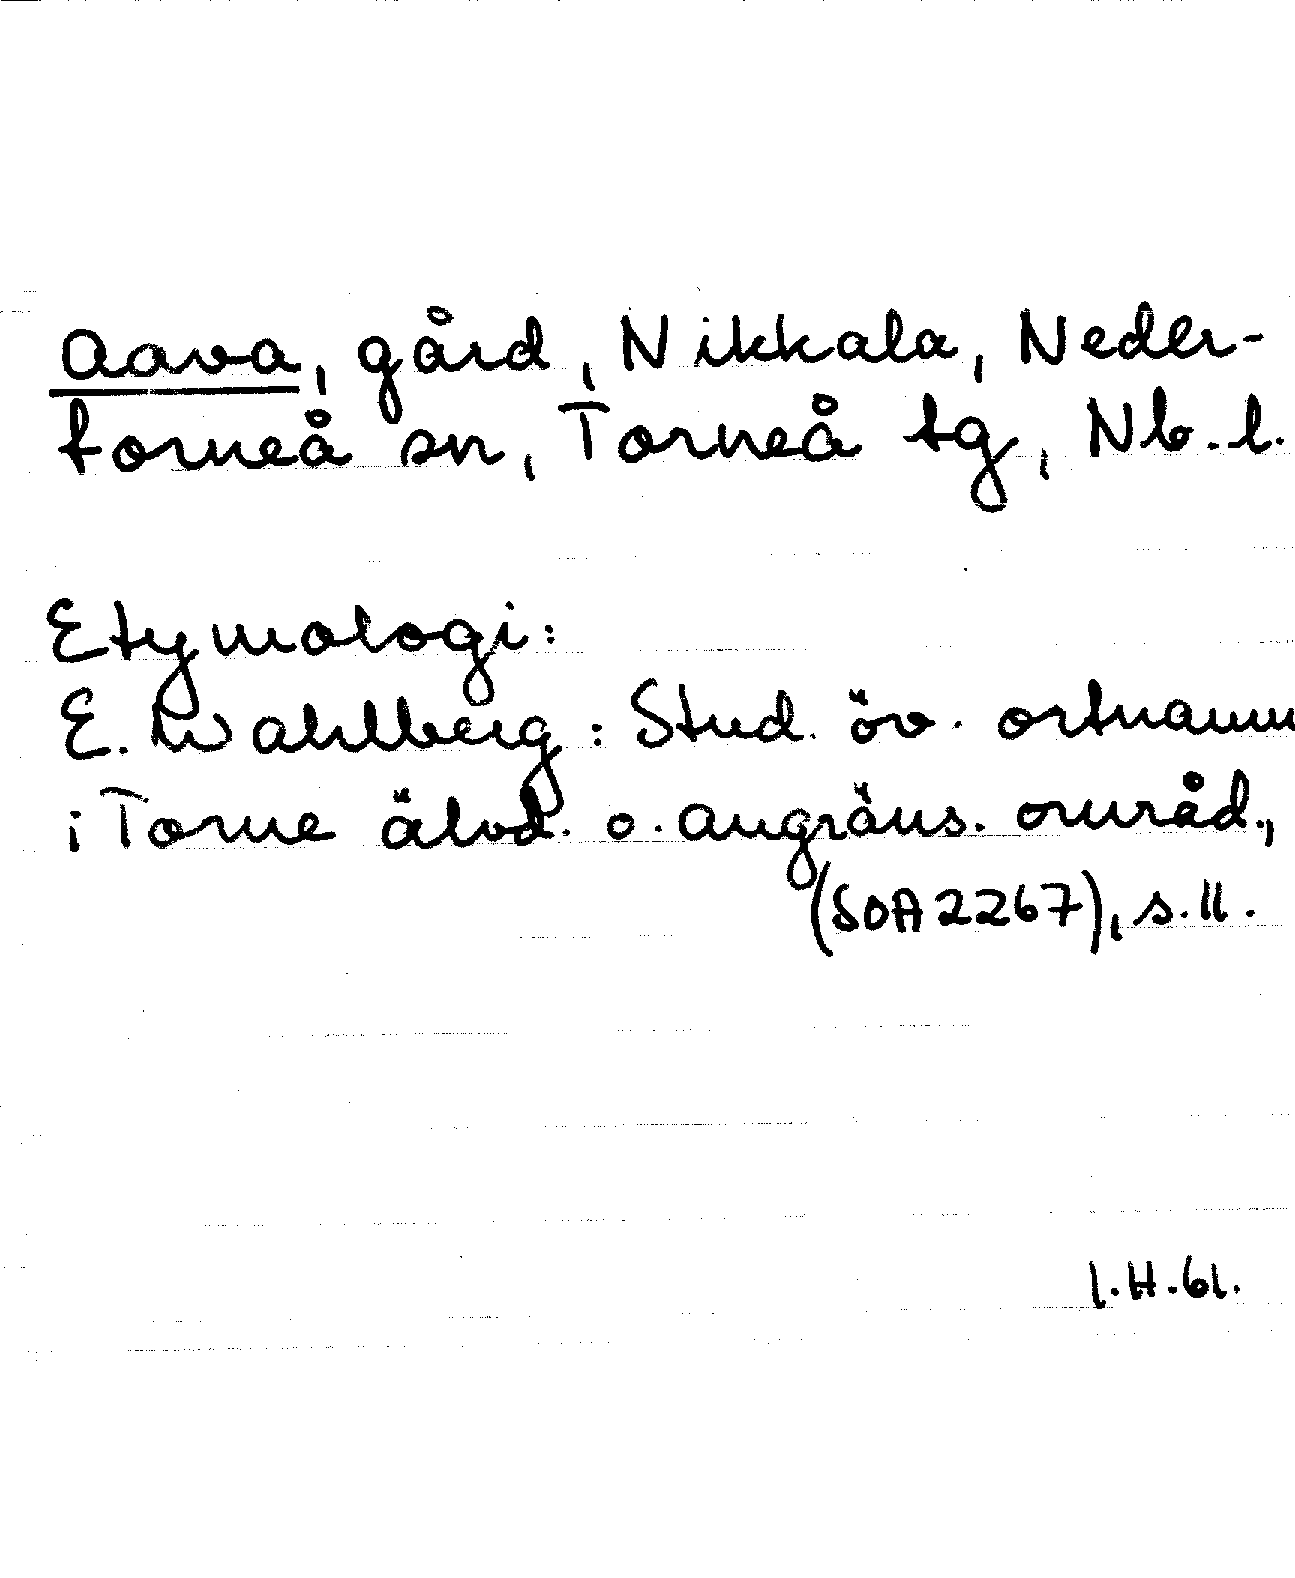 Aava, gård, Nikkala, Neder-
torneå sn, Torneå tg, Nb. l.
Etymologi:
E. Wahlberg: Stud. öv. ortnamn
i Torne älvd. o. angräns. område,
(SOA 2267), s. 11.
I.H.61.